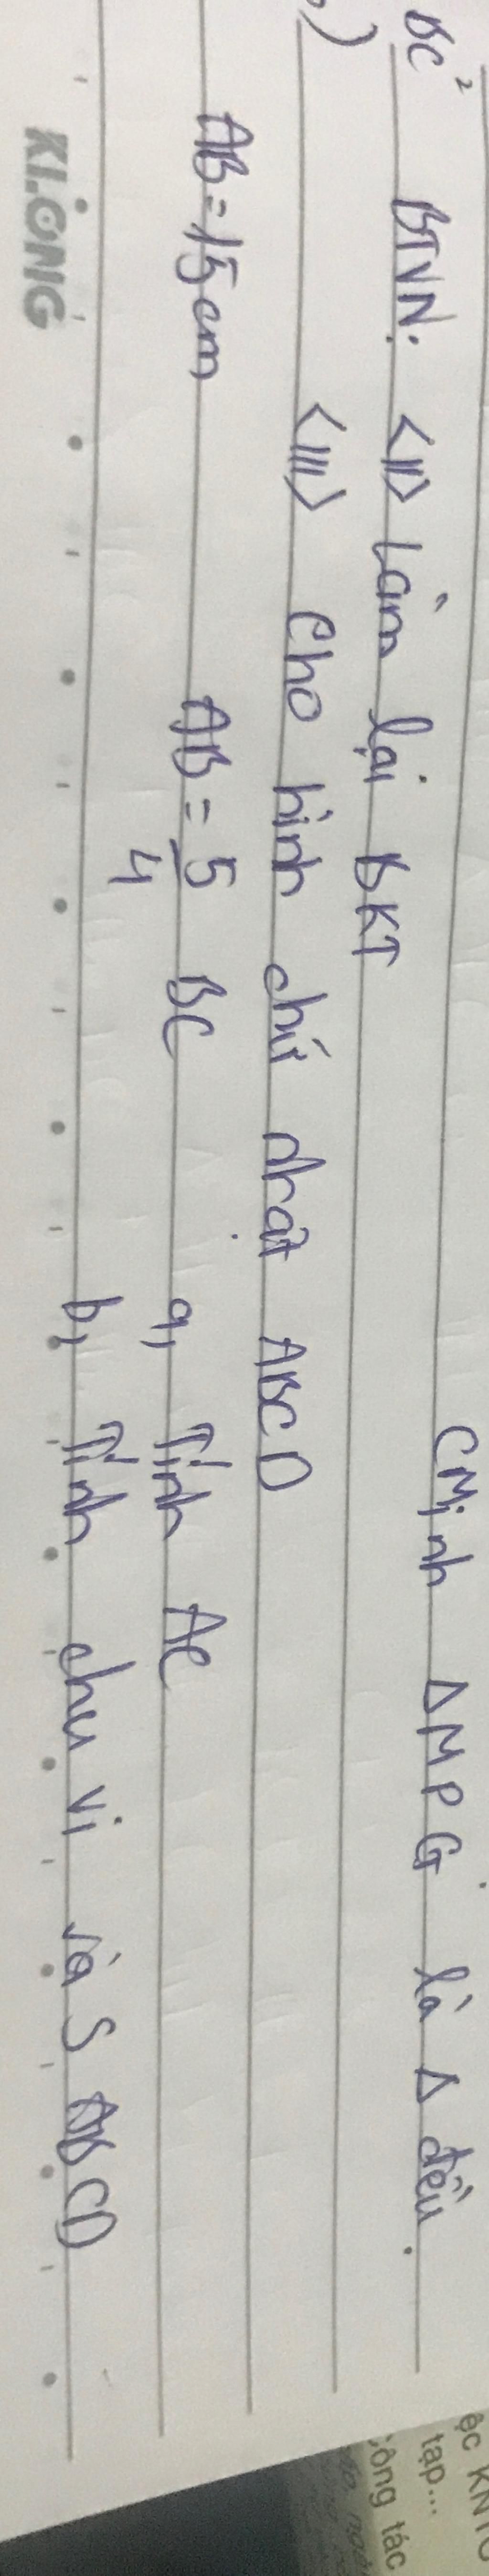 CMinh ΔMPG là Δ đều.
BC² BTVN: <II> Làm lại BKT
<III> Cho hình chứ nhật ABCD
AB = 15cm AB = 5/4 BC a, Tính AC
b, Tính chu vi và S ABCD
KLONG
ệc KNTC
tạp...
công tác